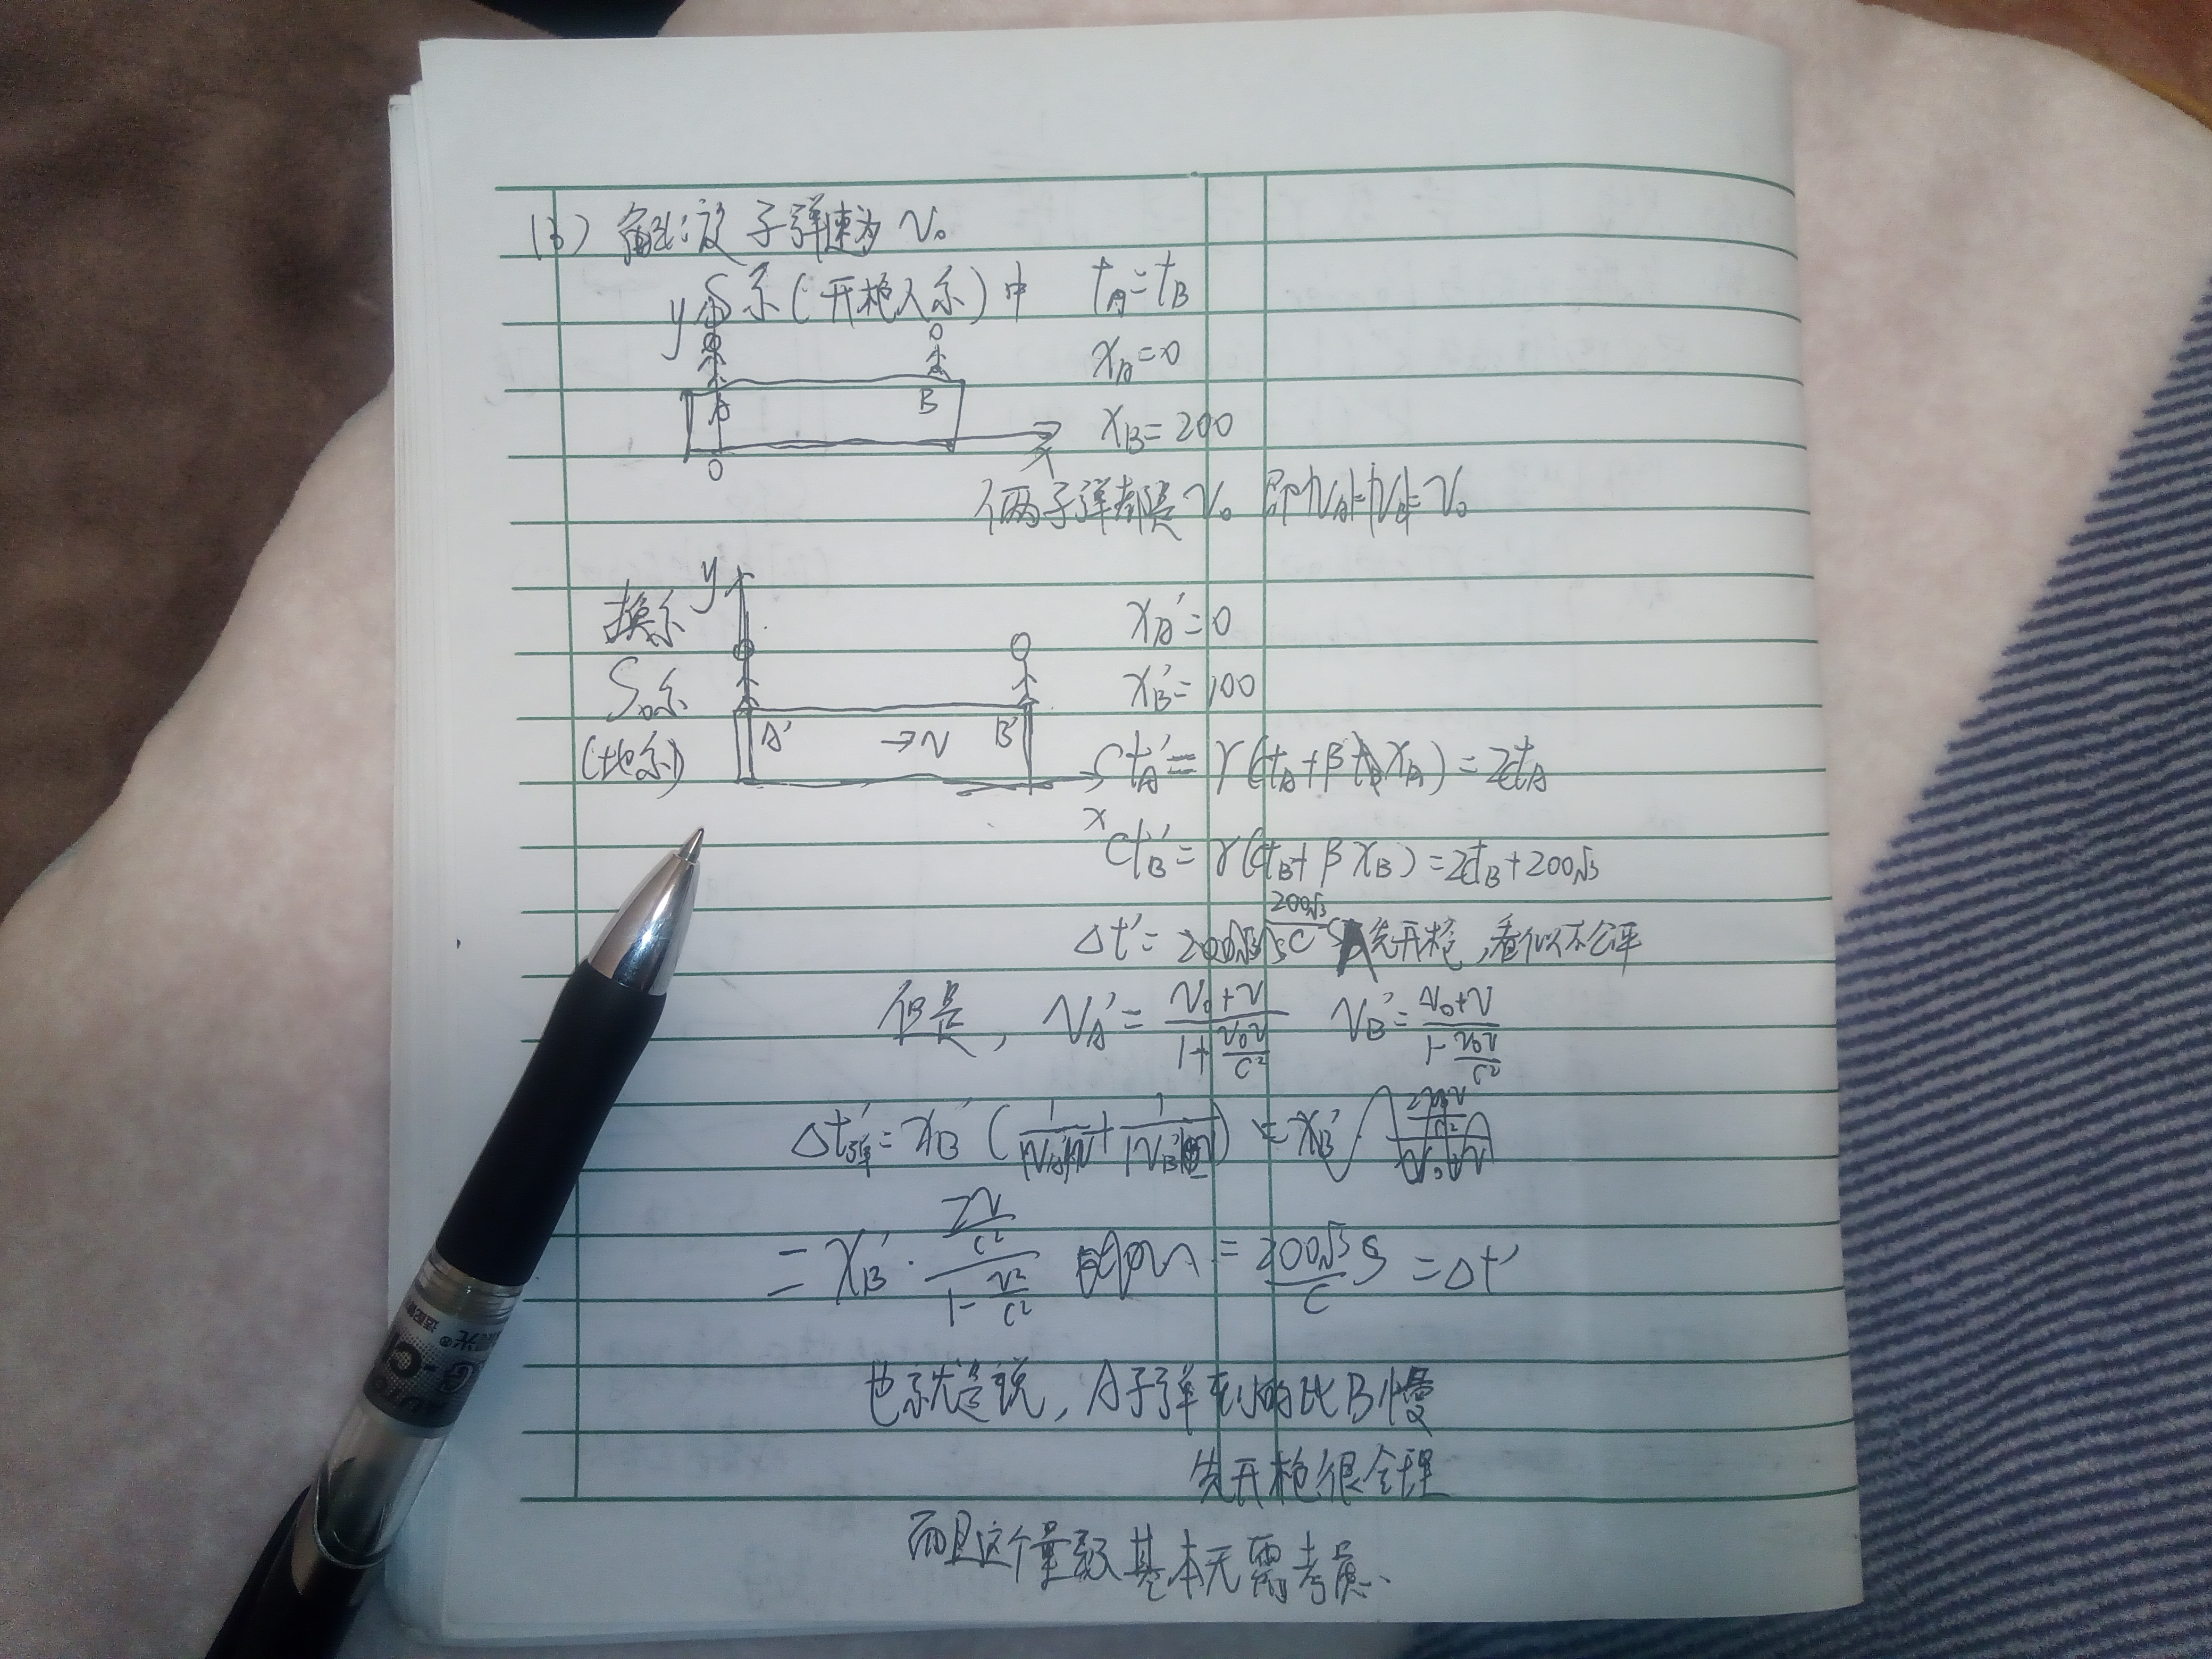 (3) 解:设子弹速为 v₀
S系(开枪人系)中 t_A=t_B
y
x_A=0
A B
x_B=200
O x
俩子弹都是v₀ 即|v_A|=|v_B|=v₀
换系 y
x_A'=0
S₀系 x_B'=100
(地系) A' →v B'
ct_A'=γ(ct_A+βx_A)=2ct_A
x
ct_B'=γ(ct_B+βx_B)=2ct_B+200√3
Δt'= 200√3/C S A先开枪,看似不公平
但是, v_A'=(v₀+v)/(1+v₀v/c²) v_B'=(v₀+v)/(1-v₀v/c²)
=x_B'·(2v/c²)/(1-v²/c²) =200√3/C S =Δt'
也就是说, A子弹到的比B慢
先开枪很合理
而且这个量级基本无需考虑.